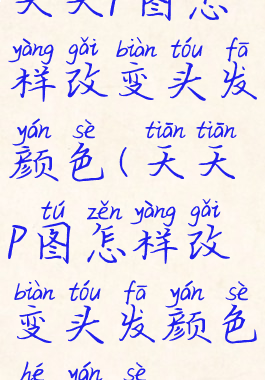 天天P图怎
yàng gǎi biàn tóu fā
样改变头发
yán sè tiān tiān
颜色(天天
tú zěn yàng gǎi
P图怎样改
biàn tóu fā yán sè
变头发颜色
hé yán sè